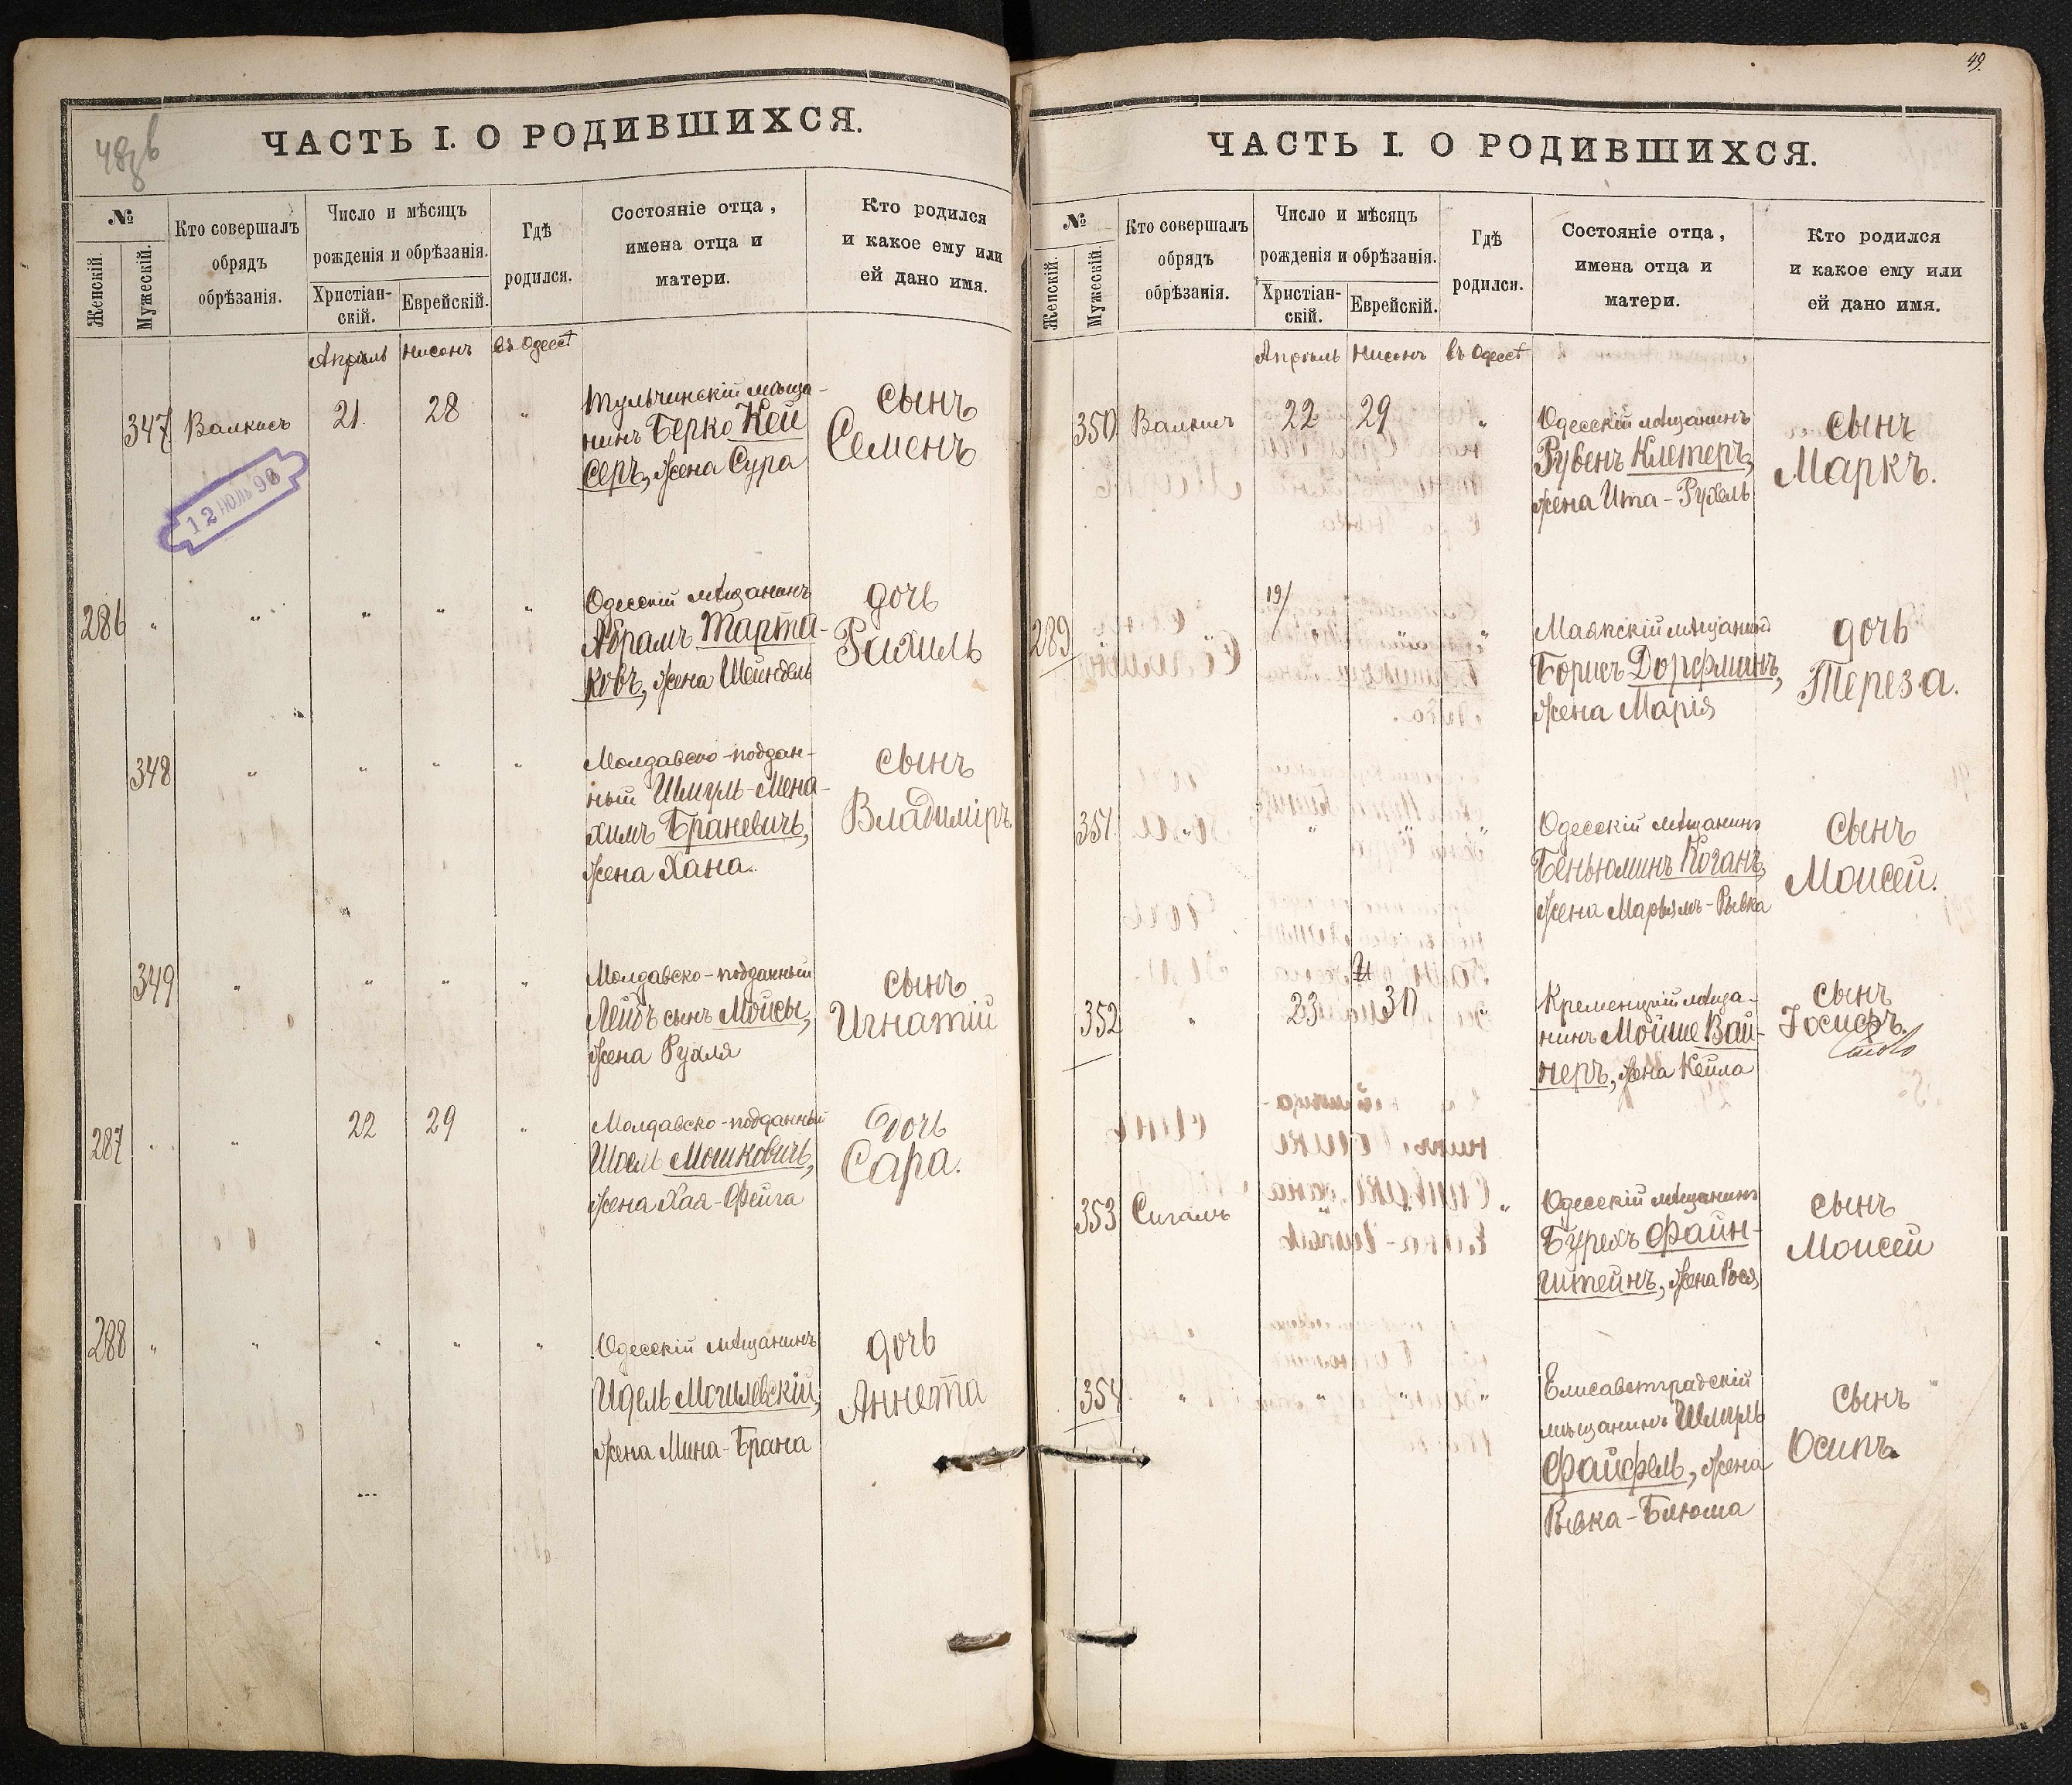 48
ЧАСТЬ I. О РОДИВШИХСЯ.
№
Женскій.
Мужескій.
Кто совершалъ
обрядъ
обрѣзанія.
Число и мѣсяцъ
рожденія и обрѣзанія.
Христіан-
скій.
Еврейскій.
Гдѣ
родился.
Состояніе отца,
имена отца и
матери.
Кто родился
и какое ему или
ей дано имя.
Апрѣль Нисонъ въ Одессѣ
347 Валкисъ 21 28 " Тульчинскій мѣща-
нинъ Берко Кей
серъ, жена Сура
сынъ
Семенъ
12 ІЮЛЬ 96
286 " " " " " Одесскій мѣщанинъ
Абрамъ Тарта-
ковъ, жена Шейндель
дочь
Рахиль
348 " " " " Молдавско-поддан-
ный Шмуль-Мена-
химъ Браневичъ,
жена Хана.
сынъ
Владиміръ
349 " " " " Молдавско-подданный
Лейбъ сынъ Мойсы,
жена Рухля
сынъ
Игнатій
287 " " 22 29 " Молдавско-подданный
Шоель Мошковичъ,
жена Хая-Фейга
дочь
Сара.
288 " " " " " Одесскій мѣщанинъ
Идель Могилевскій,
жена Мина-Брана
дочь
Аннета
49.
ЧАСТЬ I. О РОДИВШИХСЯ.
№
Женскій.
Мужескій.
Кто совершалъ
обрядъ
обрѣзанія.
Число и мѣсяцъ
рожденія и обрѣзанія.
Христіан-
скій.
Еврейскій.
Гдѣ
родился.
Состояніе отца,
имена отца и
матери.
Кто родился
и какое ему или
ей дано имя.
Апрѣль Нисонъ въ Одессѣ
350 Валкисъ 22 29 " Одесскій мѣщанинъ
Рувенъ Клетеръ,
жена Ита-Рухель
сынъ
Маркъ.
289 19/ " Маякскій мѣщанинъ
Борисъ Дорфманъ,
жена Марія
дочь
Тереза.
351 " " " Одесскій мѣщанинъ
Беньюминъ Коганъ,
жена Марьямъ-Ривка
сынъ
Моисей.
352 " 23 30 " Кременецкій мѣща-
нинъ Мойше Вай-
неръ, жена Кейла
сынъ
Іосифъ.
353 Сигалъ " Одесскій мѣщанинъ
Бурехъ Файн-
штейнъ, жена Рося
сынъ
Моисей
354 " " " " Елисаветградскій
мѣщанинъ Шмуль
Файфель, жена
Ривка-Блюма
сынъ
Осипъ.